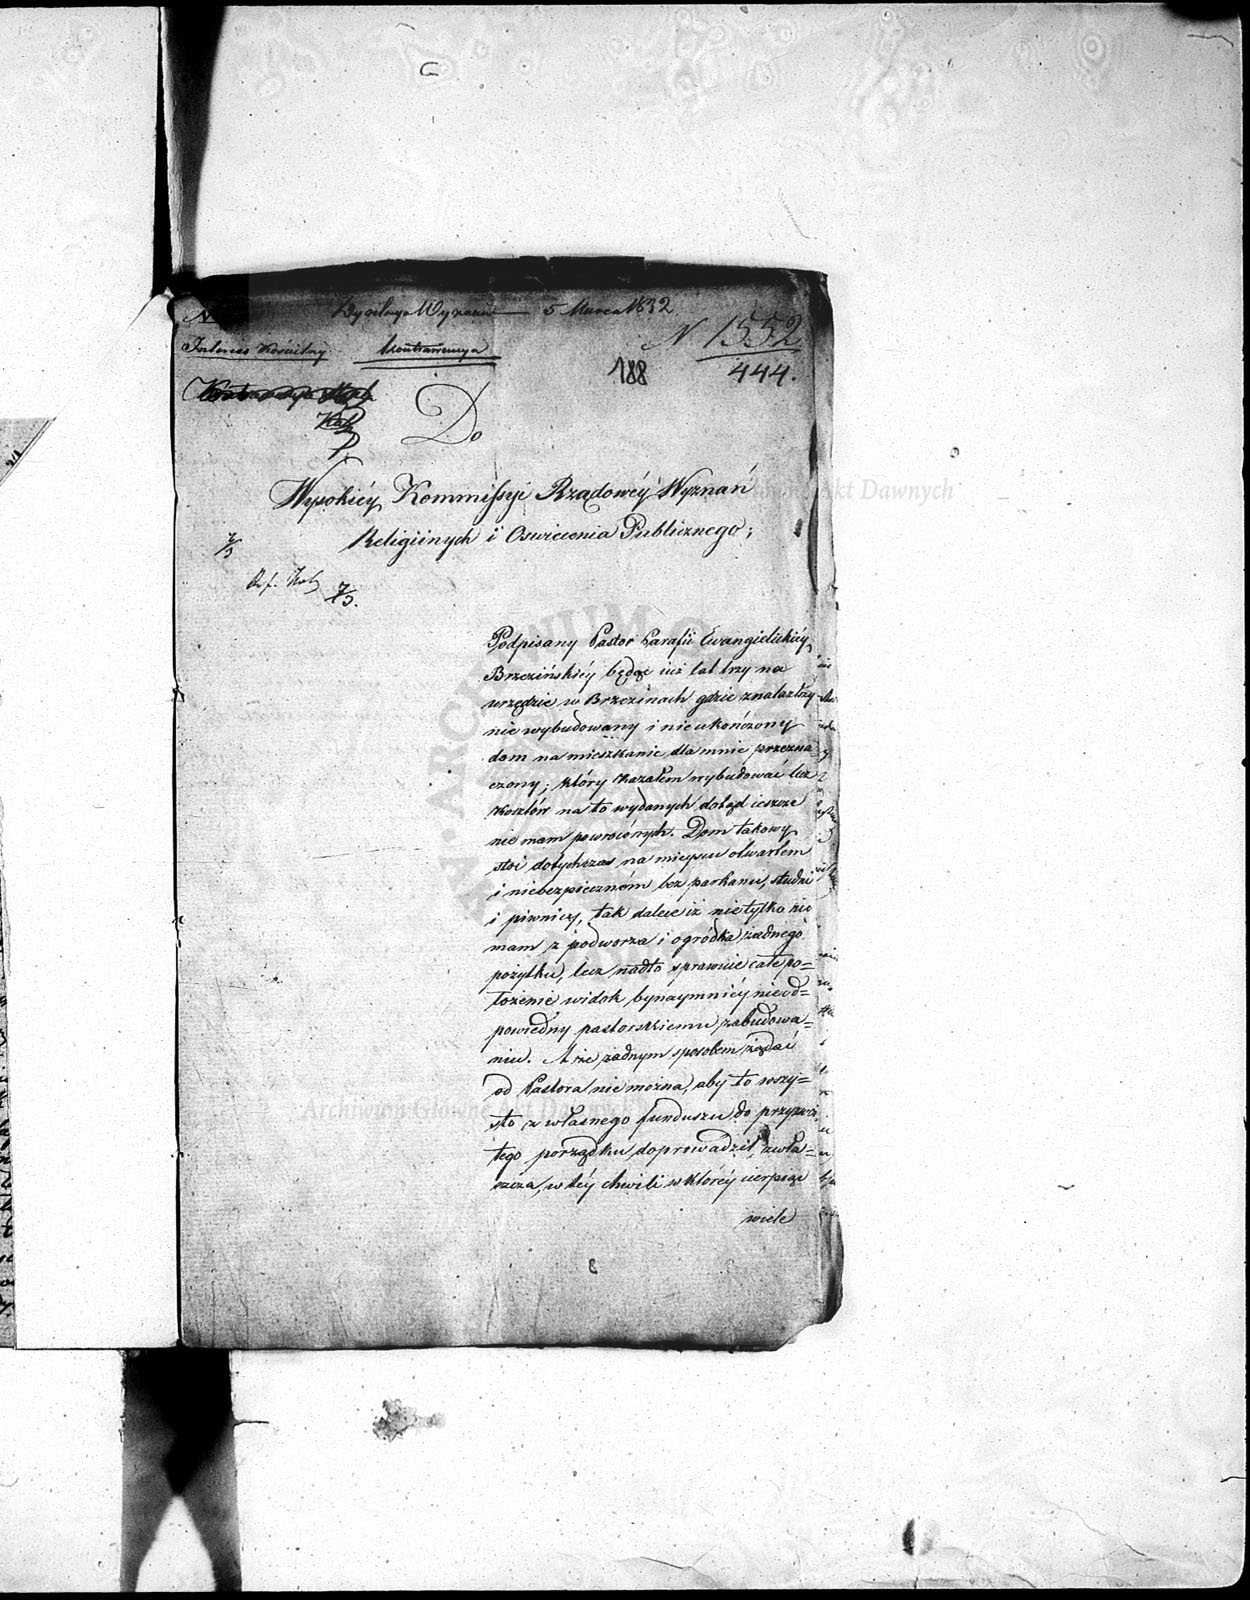 5 Marca 1832
N 1552
444.
188
Interess Kościelny
Do
Wysokiéy Kommissyi Rządowéy Wyznań
Religiinych i Oswiecenia Publicznego;
Podpisany Pastor Parafii Ewangielickiéy
Brzezińskiéy będąc iuż lat trzy na
urzędzie w Brzezinach gdzie znalazłszy
nie wybudowany i nieukończony
dom na mieszkanie dla mnie przezna
czony; który kazałem wybudować lecz
kosztów na to wydanych dotąd ieszcze
nie mam powróconych. Dom takowy
stoi dotychczas na mieyscu otwartem
i niebezpieczném bez parkanu, studni
i piwnicy, tak dalece iż nietylko nie
mam z podworza i ogródka żadnego
pożytku, lecz nadto sprawuie całe po=
łożenie widok bynaymniéy nieod=
powiedny pastorskiemu zabudowa=
niu. A że żadnym sposobem żądać
od Pastora nie można, aby to wszy=
sto z własnego funduszu do przyzwoi
tego porządku doprowadził, zwła=
szcza, w téy chwili w któréy cierpiąc
wiele
8
Archiwum Główne Akt Dawnych
Archiwum Główne Akt Dawnych